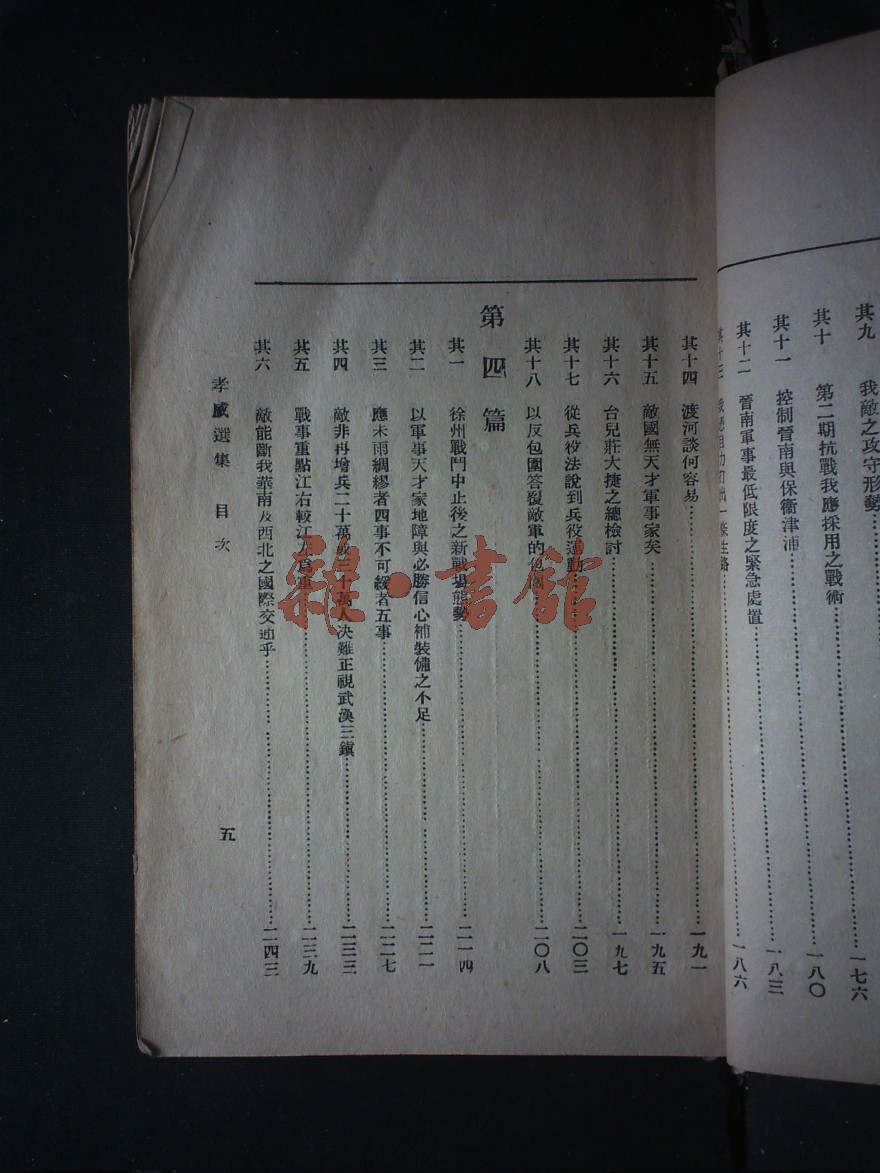 其九 我敵之攻守形勢 一七六
其十 第二期抗戰我應採用之戰術 一八〇
其十一 控制晉南與保衞津浦 一八三
其十二 晉南軍事最低限度之緊急處置 一八六
其十三 出一條生路
其十四 渡河談何容易 一九一
其十五 敵國無天才軍事家矣 一九五
其十六 台兒莊大捷之總檢討 一九七
其十七 從兵役法說到兵役運動 二〇三
其十八 以反包圍答覆敵軍的包圍 二〇八
第四篇
其一 徐州戰鬥中止後之新戰場態勢 二一四
其二 以軍事天才家地障與必勝信心補裝備之不足 二二一
其三 應未雨綢繆者四事不可緩者五事 二二七
其四 敵非再增兵二十萬或三十萬人決難正視武漢三鎭 二三三
其五 戰事重點江右較江左爲重 二三九
其六 敵能斷我華南及西北之國際交通乎 二四三
孝威選集 目次
五
雜·書館